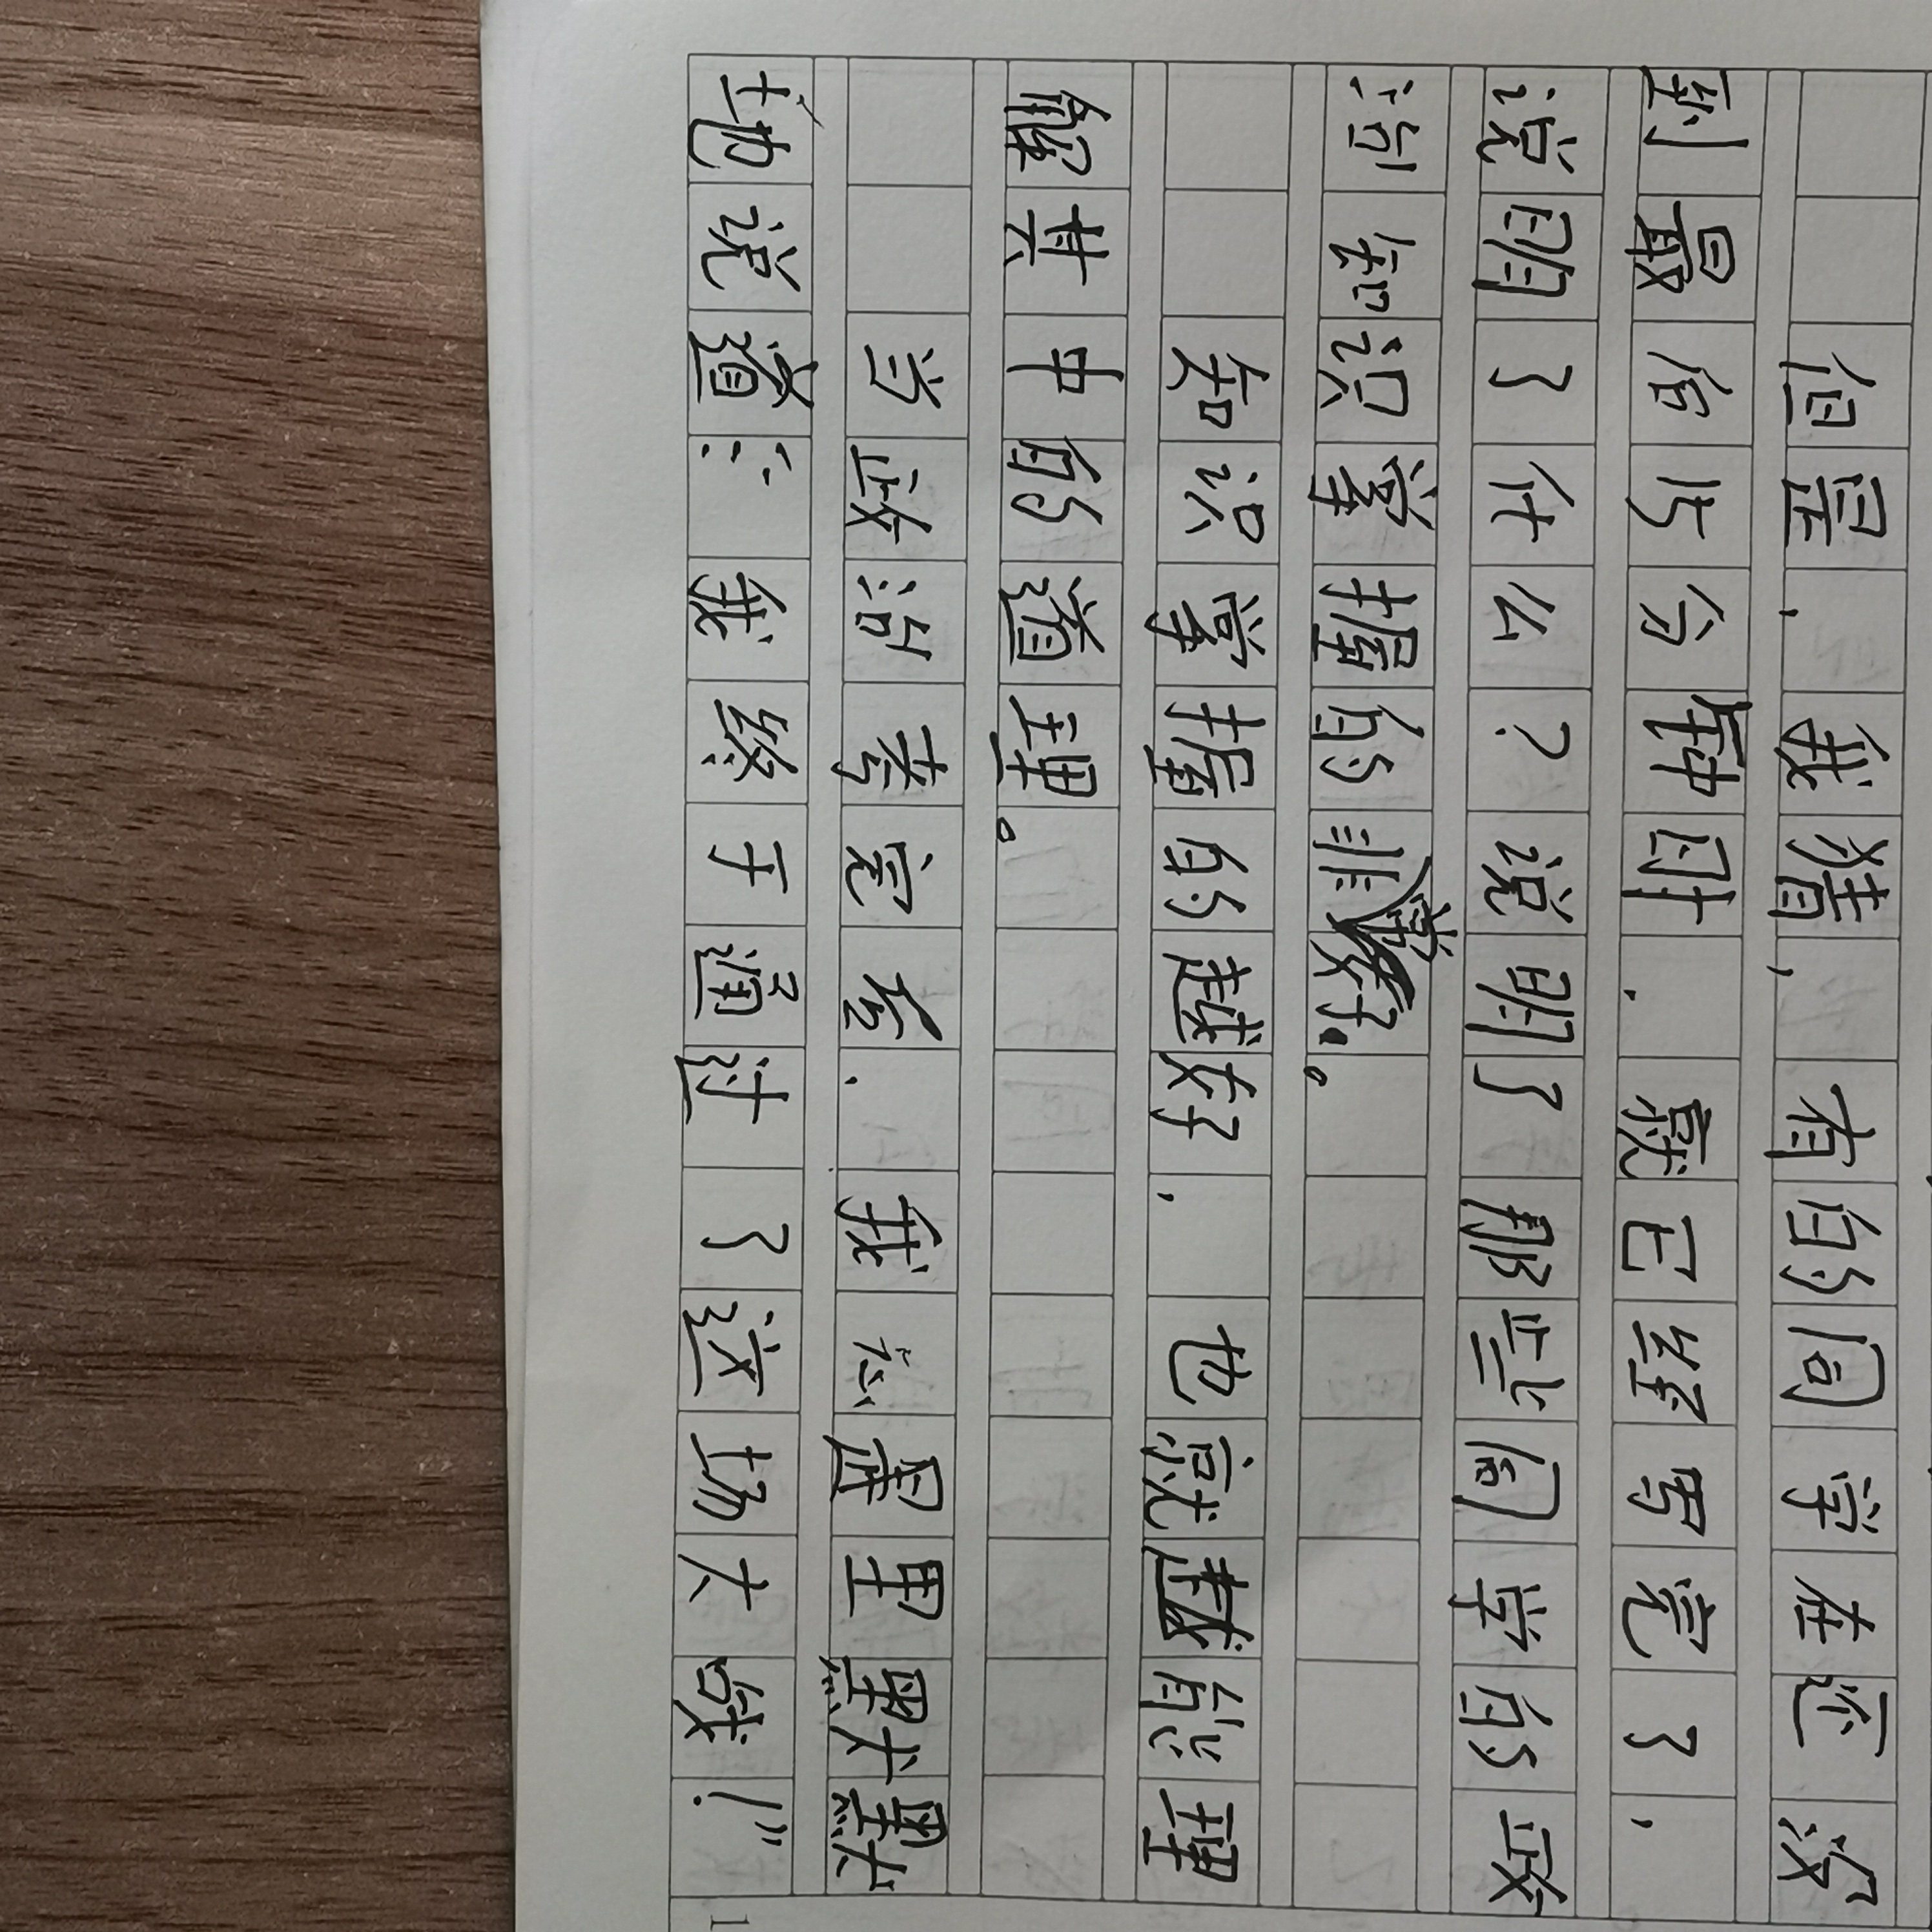 但是，我猜，有的同学在还没
到最后15分钟时，就已经写完了，
说明了什么？说明了那些同学的政
治知识掌握的非常好。
知识掌握的越好，也就越能理
解其中的道理。
当政治考完后，我心里默默
地说道：“我终于通过了这场大战！”